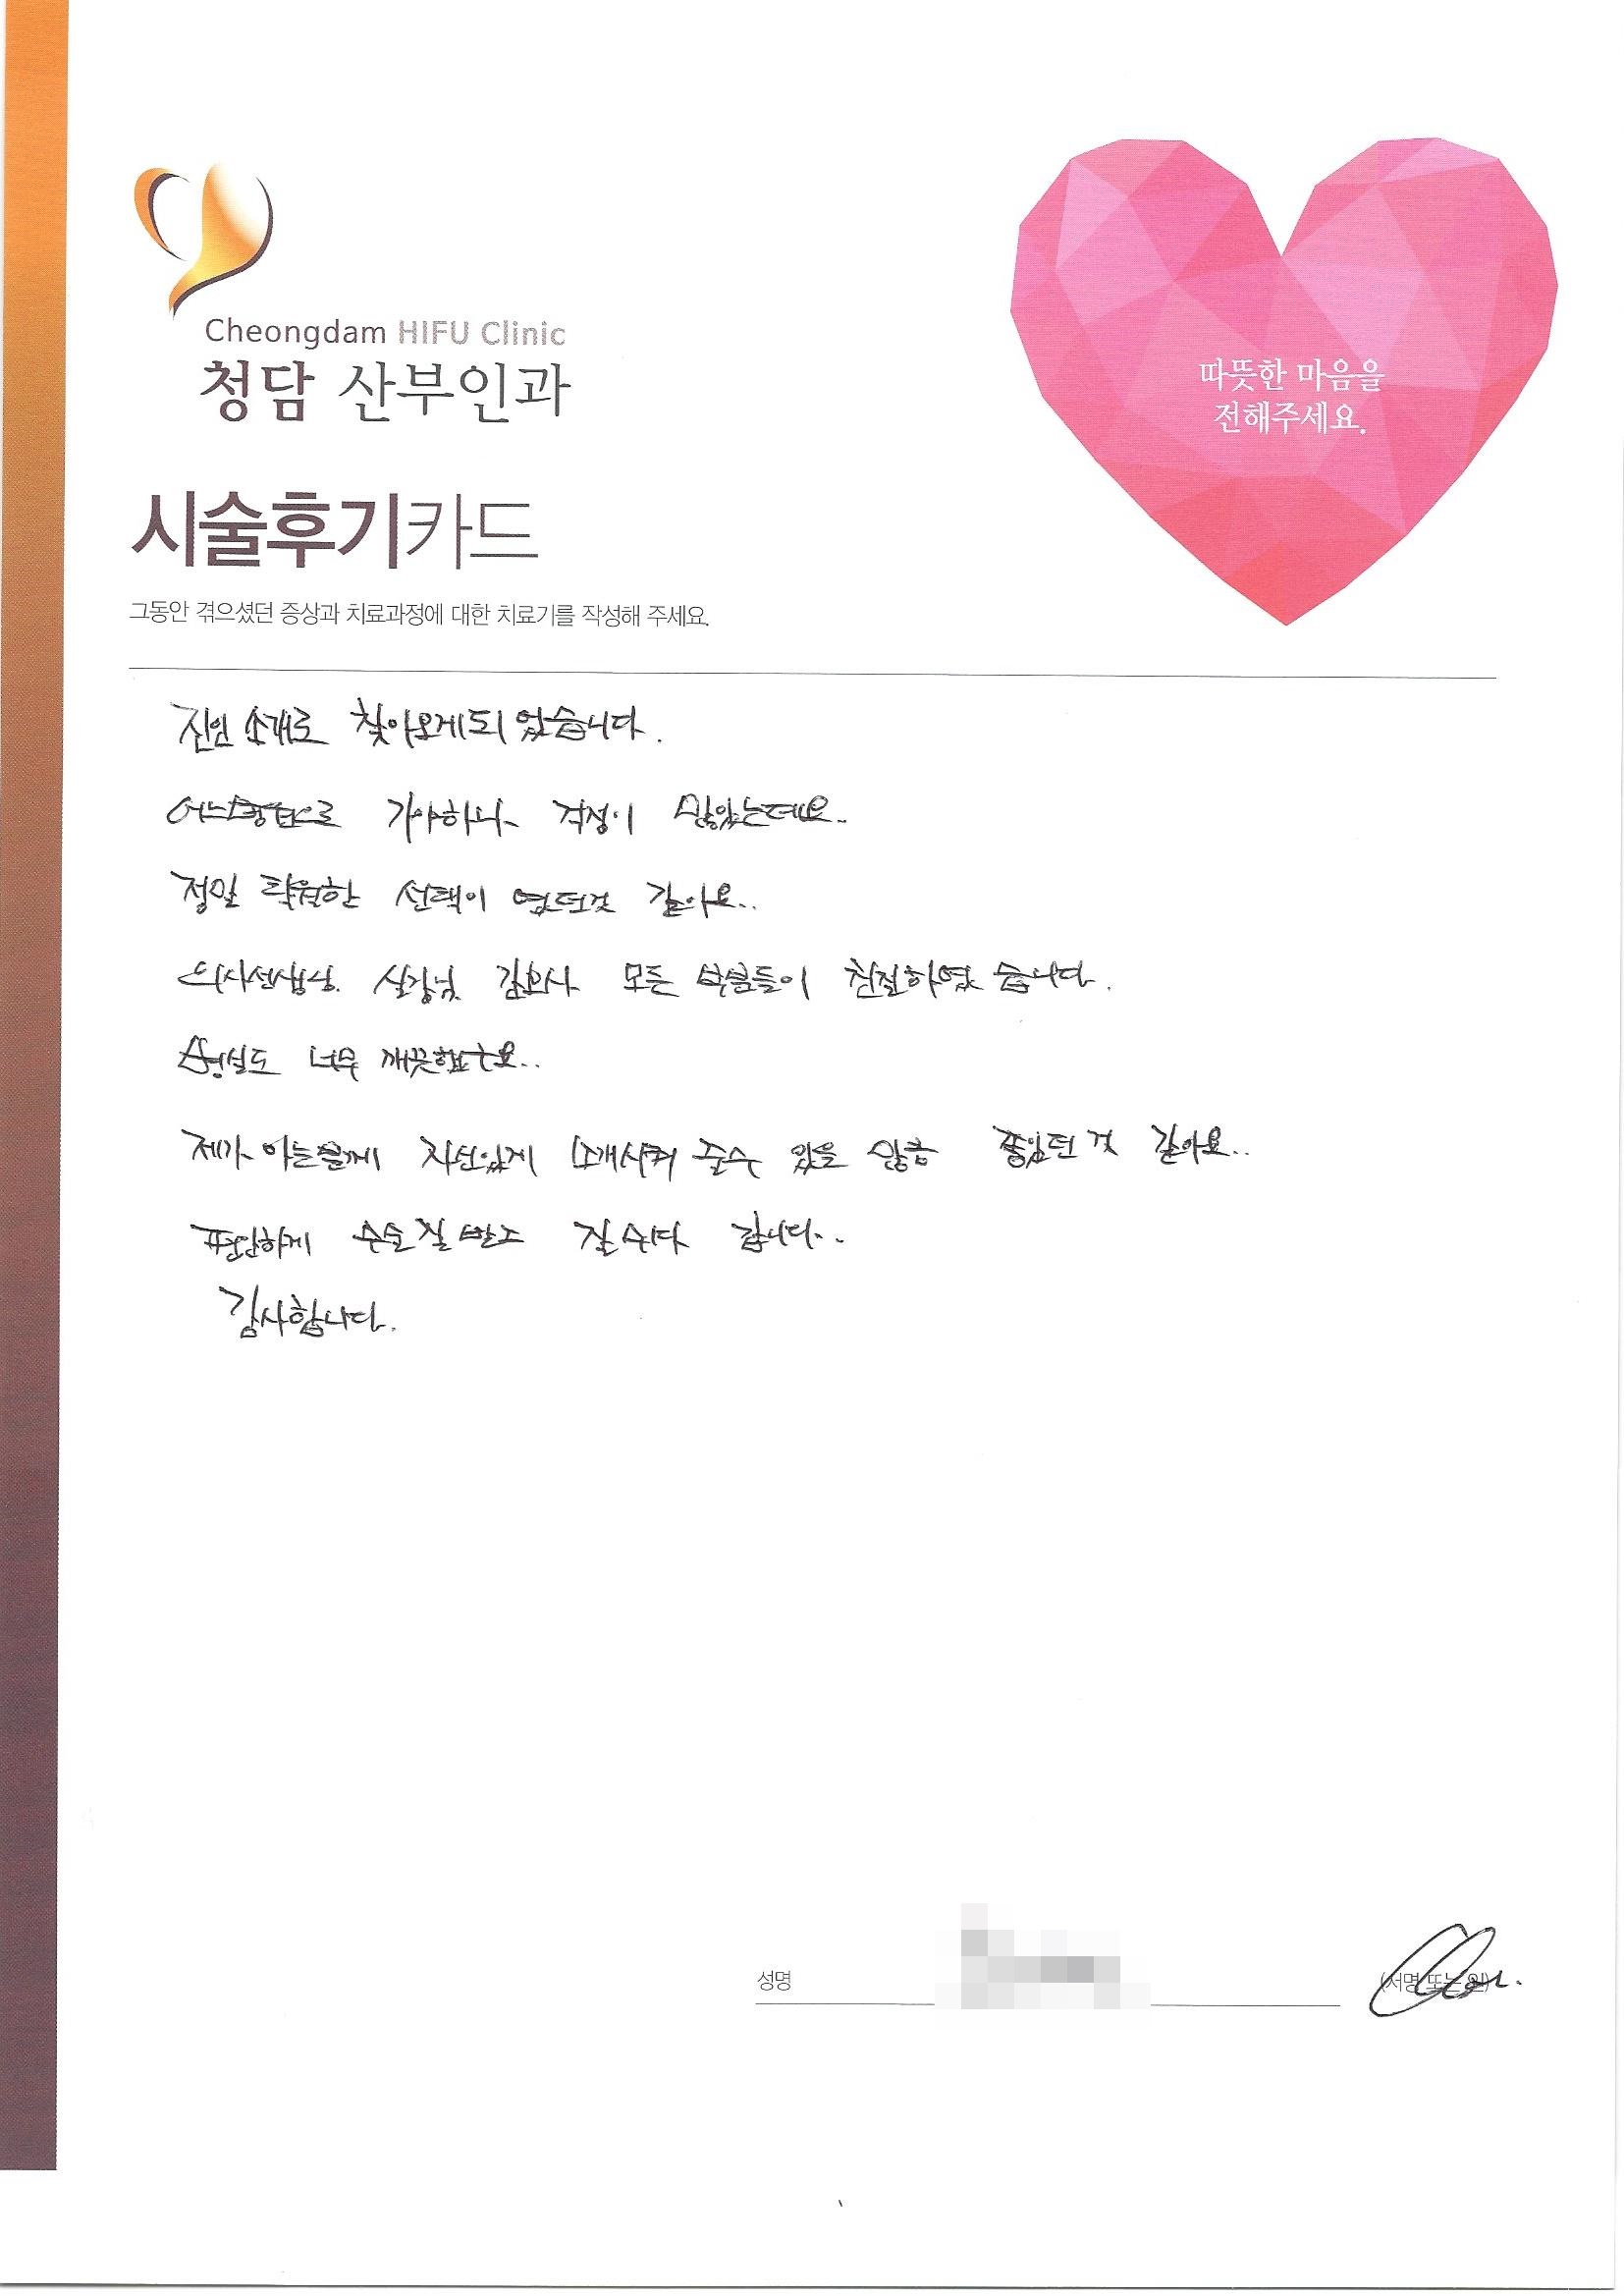 Cheongdam HIFU Clinic
청담 산부인과
따뜻한 마음을
전해주세요.
시술후기카드
그동안 겪으셨던 증상과 치료과정에 대한 치료기를 작성해 주세요.
지인 소개로 찾아오게되었습니다.
어느병원으로 가야하나 걱정이 많았는데요..
정말 탁월한 선택이 였던것 같아요..
의사선생님 실장님 간호사 모든 분들이 친절하였습니다.
병실도 너무 깨끗했구요..
제가 아는분께 자신있게 소개시켜 줄수 있을 만큼 좋았던 것 같아요..
편안하게 수술 잘 받고 잘 쉬다 갑니다..
감사합니다.
성명
(서명 또는 인)